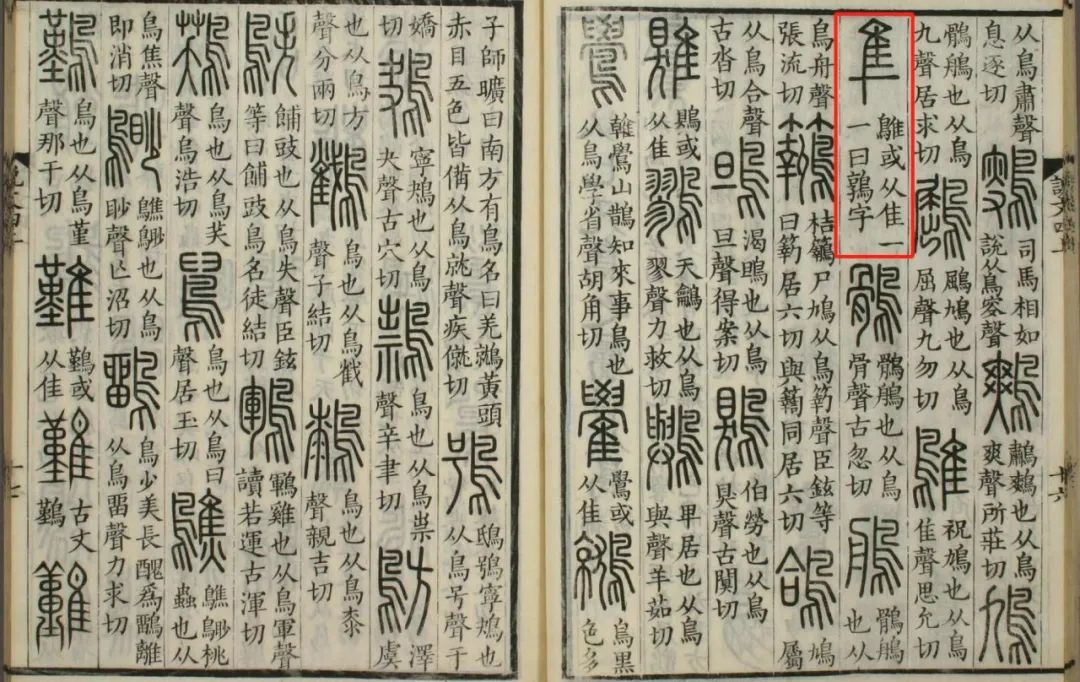 从鳥肅聲息逐切 司馬相如說从鳥叜聲 鷞 鷫鷞也从鳥爽聲所莊切 鳩
鶻鵃也从鳥九聲居求切 鶌 鶌鳩也从鳥屈聲九勿切 鵻 祝鳩也从鳥隹聲思允切
隼 鵻或从隹一一曰鶉字 鶻 鶻鵃也从鳥骨聲古忽切 鵃 鶻鵃也从
鳥舟聲張流切 秸鵴尸鳩从鳥𥷚聲臣鉉等曰𥷚居六切與鞠同居六切 鴿 鳩屬
从鳥合聲古沓切 鴠 渴鴠也从鳥旦聲得案切 鶪 伯勞也从鳥狊聲古闃切
𨾴 鶪或从隹 鷚 天鸙也从鳥翏聲力救切 鸒 卑居也从鳥與聲羊茹切
鷽 雗鷽山鵲知來事鳥也从鳥學省聲胡角切 雤 鷽或从隹 鷲 鳥黑色多
子師曠曰南方有鳥名曰羌鷲黃頭赤目五色皆備从鳥就聲疾僦切 鴞 鴟鴞寧鴂也从鳥号聲于
嬌切 鴂 寧鴂也从鳥夬聲古穴切 鳥也从鳥祟聲辛聿切 鶭 澤虞
也从鳥方聲分兩切 鳥也从鳥截聲子結切 鳥也从鳥桼聲親吉切
鴩 餔豉也从鳥失聲臣鉉等曰餔豉鳥名徒結切 鶤 鶤雞也从鳥軍聲讀若運古渾切
鳥也从鳥芺聲烏浩切 鳥也从鳥臼聲居玉切 鷦 鷦䳟桃蟲也从
鳥焦聲即消切 䳟 鷦䳟也从鳥眇聲亡沼切 鶹 鳥少美長醜爲鶹離从鳥畱聲力求切
鳥也从鳥堇聲那干切 難 或从隹 古文